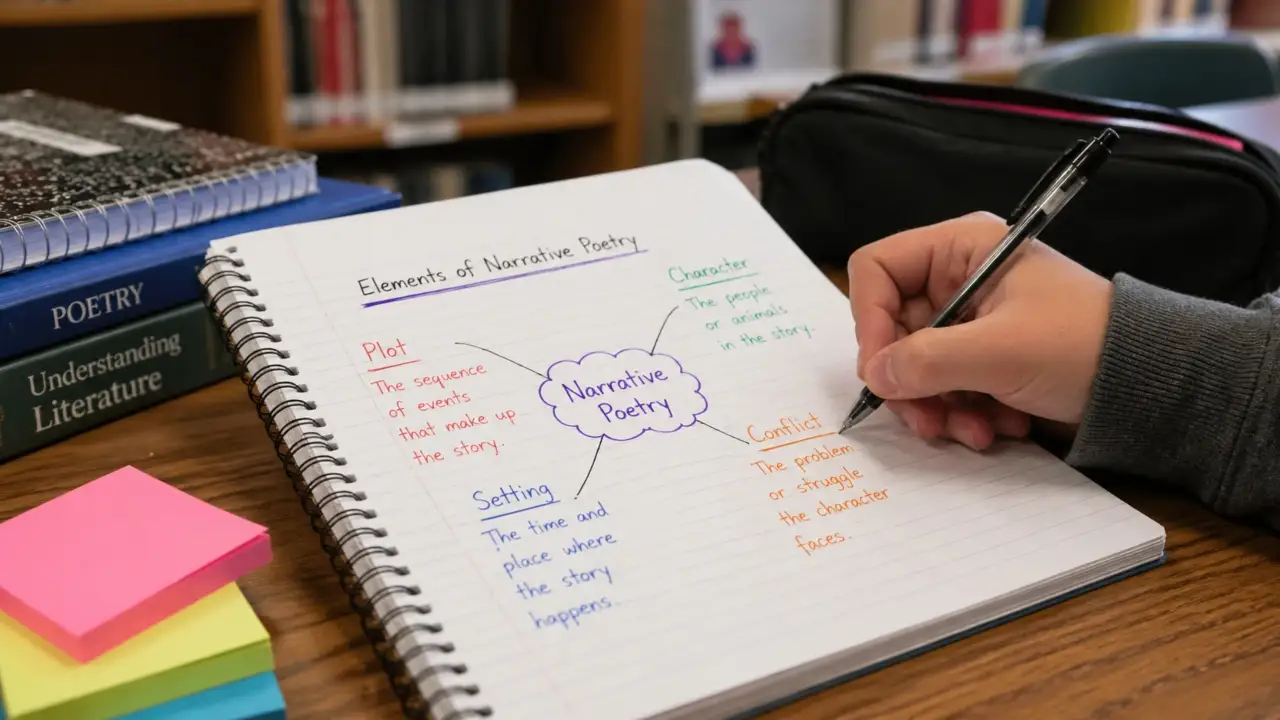 POETRY
Understanding
Literature
Elements of Narrative Poetry
Plot
The sequence
of events
that make up
the story.
Character
The people
or animals
in the story.
Narrative
Poetry
Setting
The time and
place where
the story
happens.
Conflict
The problem
or struggle
the character
faces.